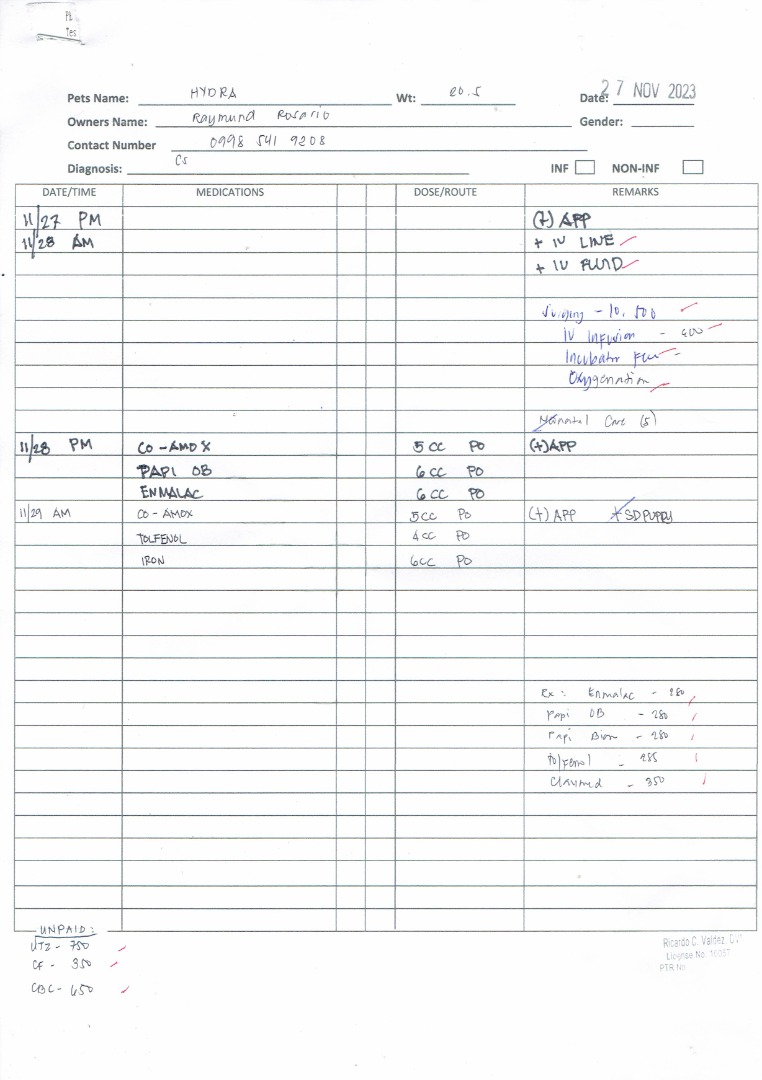 Pt
Tes
Pets Name: HYDRA Wt: 20.5 Date: 27 NOV 2023
Owners Name: Raymund Rosario Gender:
Contact Number 0998 541 9208
Diagnosis: CS INF NON-INF
DATE/TIME MEDICATIONS DOSE/ROUTE REMARKS
11/27 PM (+) APP
11/28 AM + IV LINE
+ IV FLUID
- 10,500
IV Infusion - 400
Incubator Fee -
Oxygenation
Neonatal Care (5)
11/28 PM CO-AMOX 5 CC PO (+) APP
PAPI OB 6 CC PO
ENMALAC 6 CC PO
11/29 AM CO-AMOX 5CC PO (+) APP *SD PUPPY
TOLFENOL 4CC PO
IRON 6CC PO
Rx: Enmalac - 280
Papi OB - 280
Papi - 280
Tolfenol - 285
- 350
UNPAID:
UTZ - 750
CF - 350
CBC - 650
Ricardo C. Valdez, DVM
License No.
PTR No.